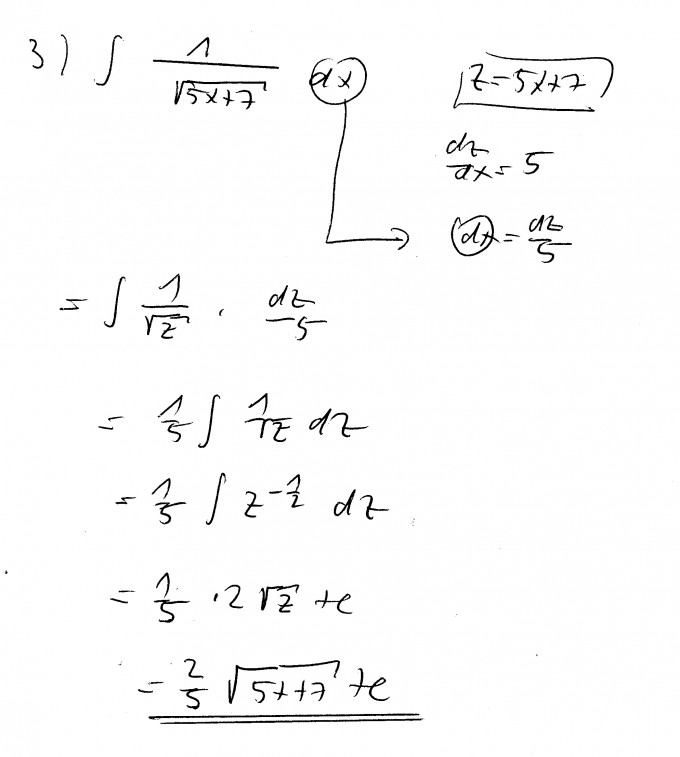 3) ∫ 1/√(5x+7) dx
z=5x+7
dz/dx = 5
dx = dz/5
= ∫ 1/√z · dz/5
= 1/5 ∫ 1/√z dz
= 1/5 ∫ z^(-1/2) dz
= 1/5 · 2 √z + c
= 2/5 √(5x+7) + c